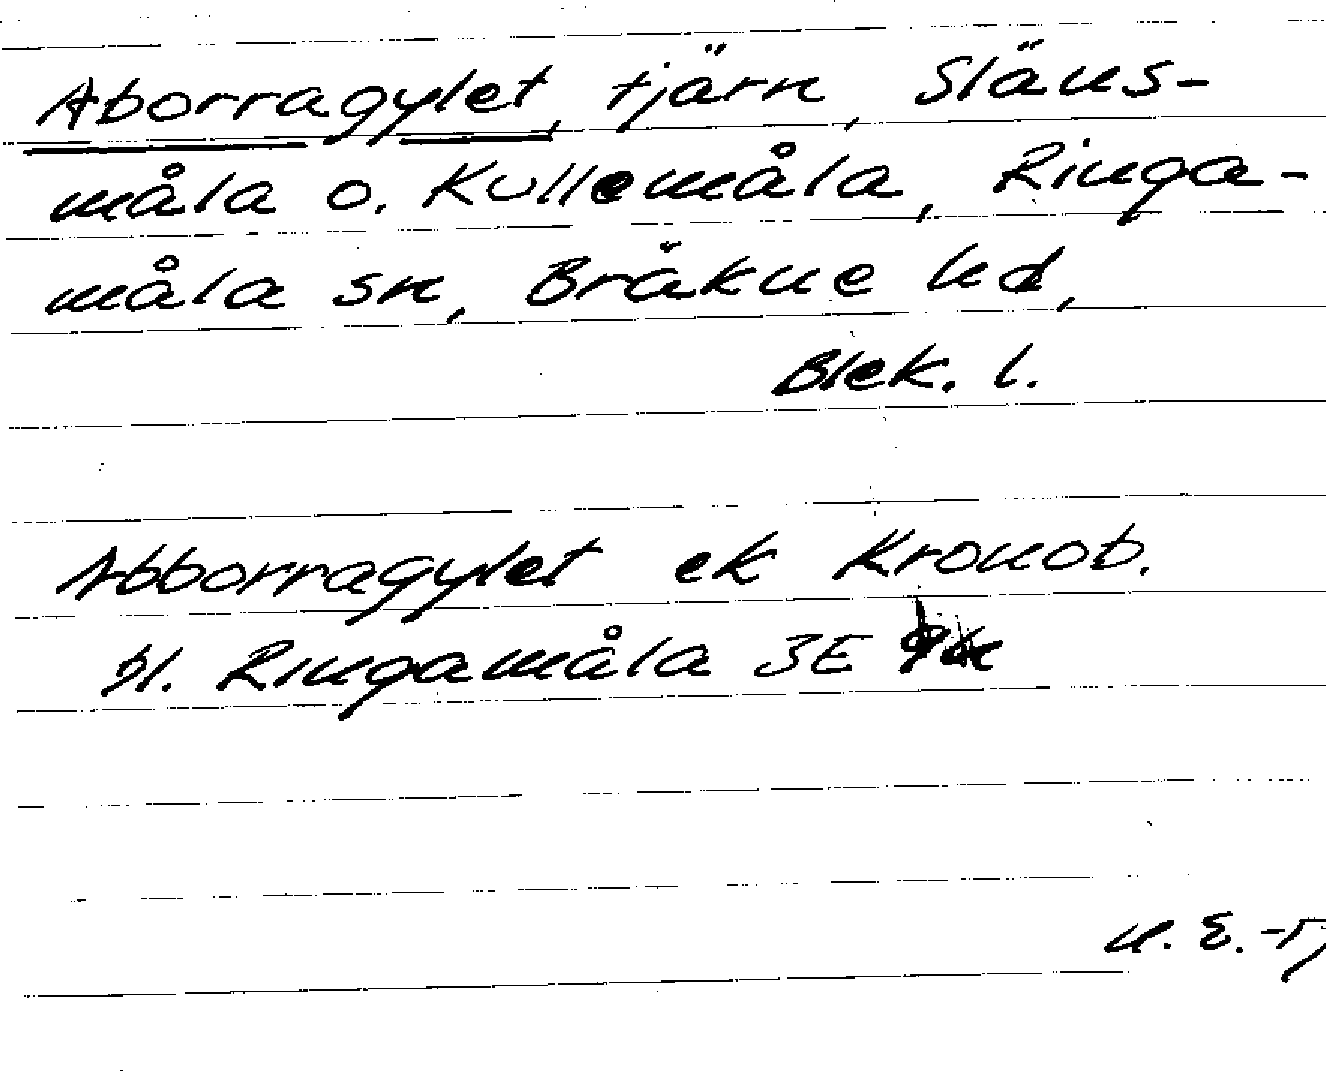 Aborragylet, tjärn, Släns-
måla o. Kullemåla, Ringa-
måla sn, Bräkne hd,
Blek. l.
Abborragylet ek Kronob.
bl. Ringamåla 3E